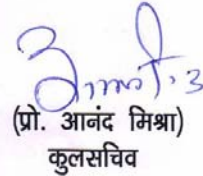 (प्रो. आनंद मिश्रा)
कुलसचिव